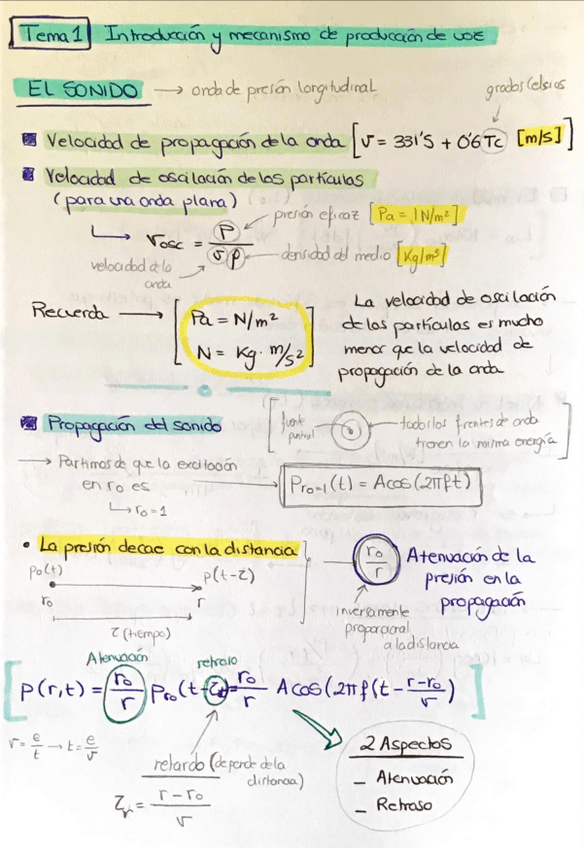 Tema 1 Introducción y mecanismo de producción de voz
EL SONIDO → onda de presión longitudinal
grados Celsius
Velocidad de propagación de la onda [v = 331'5 + 0'6 Tc [m/s]]
Velocidad de oscilación de las partículas
(para una onda plana)
presión eficaz [Pa = 1N/m²]
vosc = P / vρ
densidad del medio [Kg/m³]
velocidad de la
onda
Recuerda → [Pa = N/m²
N = Kg · m/s²]
La velocidad de oscilación
de las partículas es mucho
menor que la velocidad de
propagación de la onda
Propagación del sonido
[fuente
puntual
todos los frentes de onda
tienen la misma energía]
→ Partimos de que la excitación
en r0 es → Pr0=1(t) = A cos(2πft)
↳ r0 = 1
• La presión decae con la distancia
r0/r
Atenuación de la
presión en la
propagación
p0(t) p(t-τ)
r0 r
τ (tiempo)
inversamente
proporcional
a la distancia
Atenuación retraso
[p(r,t) = r0/r pr0(t-τr) = r0/r A cos(2πf(t - r-r0/v)]
v = e/t → t = e/v
retardo (depende de la
distancia)
τr = r-r0/v
2 Aspectos
- Atenuación
- Retraso